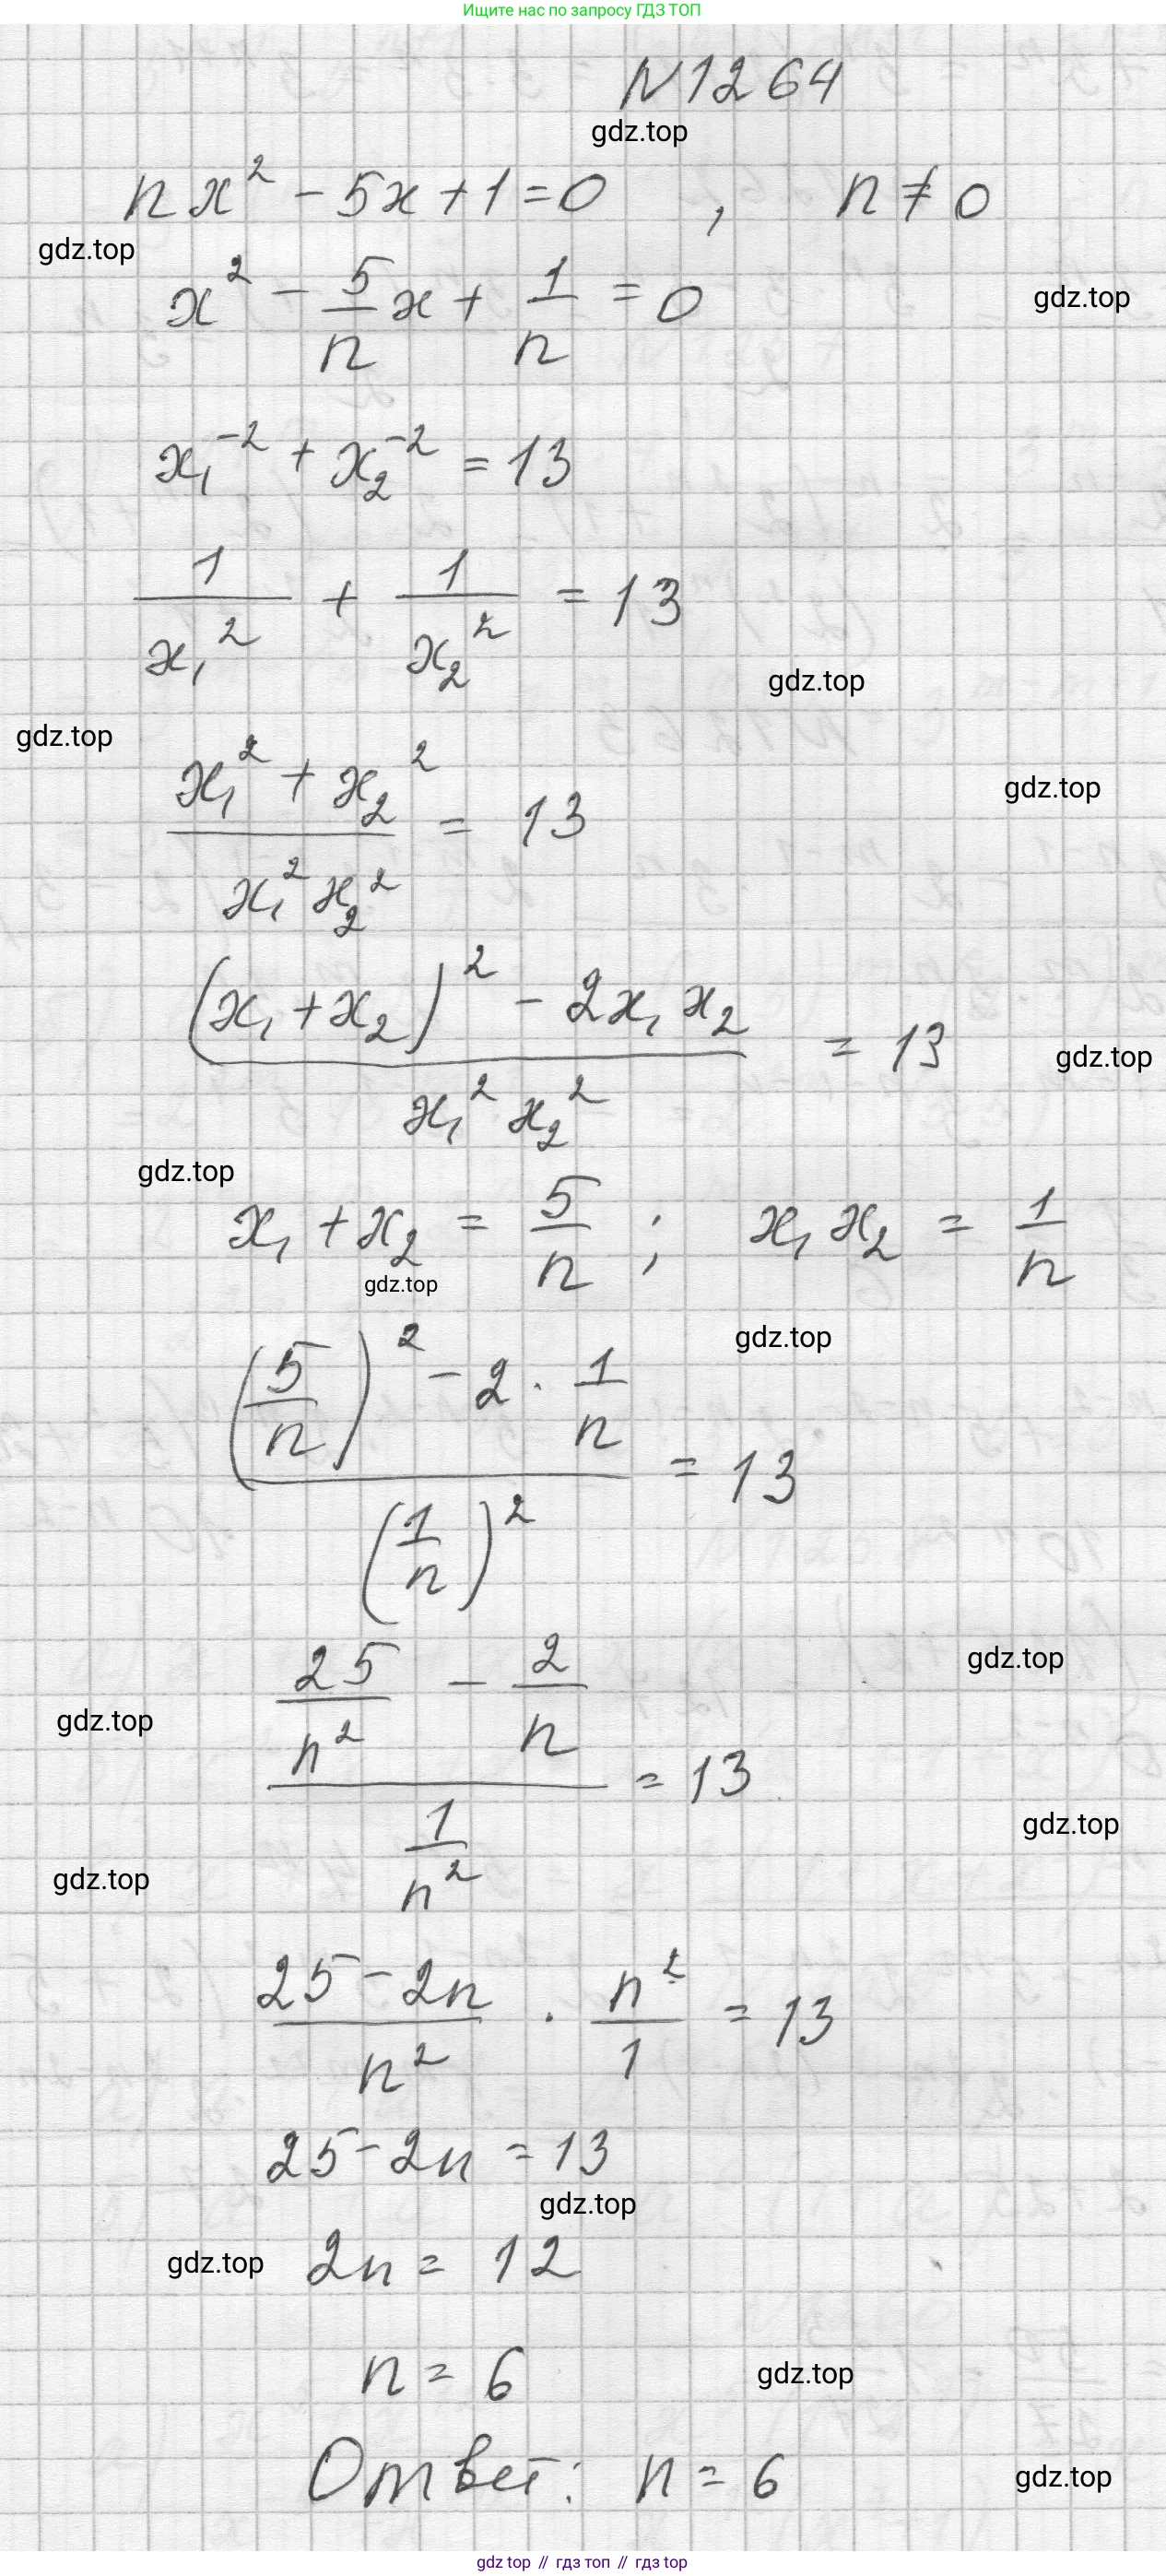 Ищите нас по запросу ГДЗ ТОП
N1264
gdz.top
nx² - 5x + 1 = 0 , n ≠ 0
gdz.top
x² - 5/n x + 1/n = 0
gdz.top
x₁⁻² + x₂⁻² = 13
1/x₁² + 1/x₂² = 13
gdz.top
gdz.top
(x₁² + x₂²)/(x₁² x₂²) = 13
gdz.top
((x₁ + x₂)² - 2x₁ x₂)/(x₁² x₂²) = 13
gdz.top
gdz.top
x₁ + x₂ = 5/n ; x₁ x₂ = 1/n
gdz.top
gdz.top
((5/n)² - 2 · 1/n)/((1/n)²) = 13
gdz.top
gdz.top
(25/n² - 2/n)/(1/n²) = 13
gdz.top
gdz.top
(25 - 2n)/n² · n²/1 = 13
25 - 2n = 13
gdz.top
gdz.top
2n = 12
n = 6
gdz.top
Ответ: n = 6
gdz.top
gdz top // гдз топ // гдз top